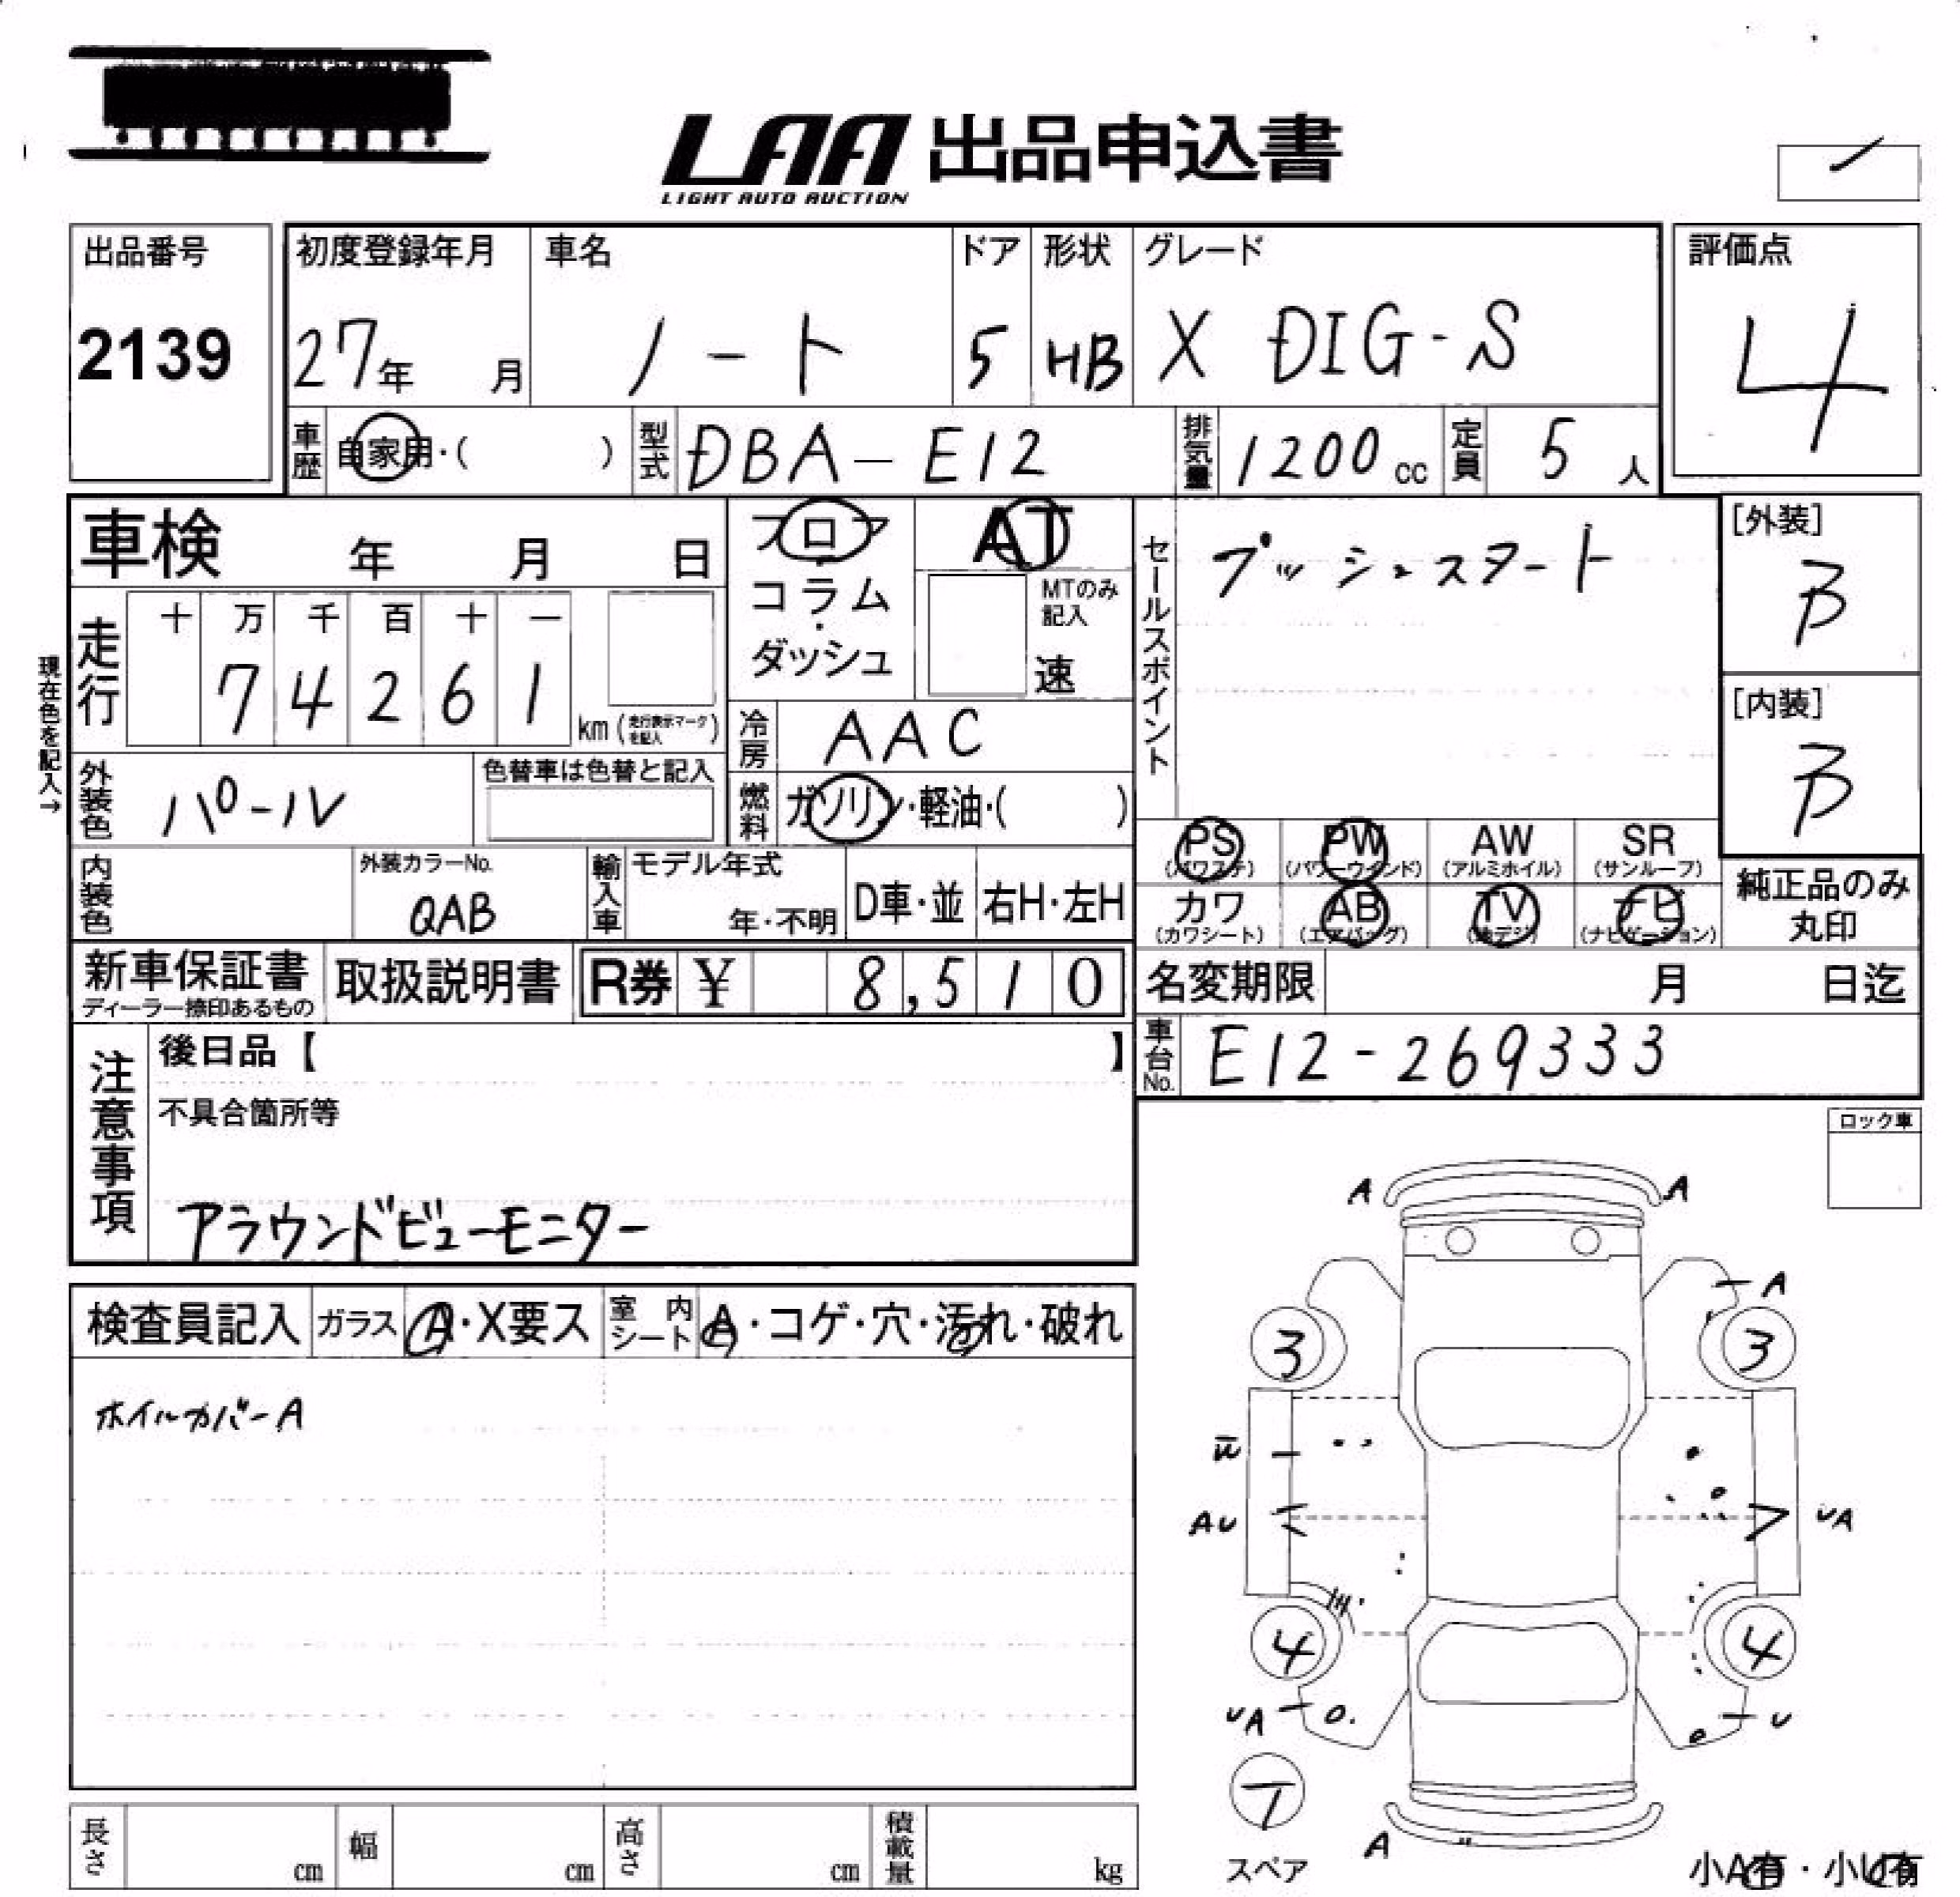 LAA 出品申込書
LIGHT AUTO AUCTION
出品番号
2139
初度登録年月
27年 月
車名
ノート
ドア
5
形状
HB
グレード
X DIG-S
評価点
4
車歴 自家用・( )
型式 DBA-E12
排気量 1200cc
定員 5人
車検 年 月 日
フロア
コラム
ダッシュ
AT
MTのみ
記入
速
セールスポイント
プッシュスタート
[外装]
B
[内装]
B
現在色を記入→
走行
十 万 千 百 十 一
7 4 2 6 1
km (走行表示マークを記入)
冷房 AAC
外装色 パール
色替車は色替と記入
燃料 ガソリン・軽油・( )
PS (パワステ)
PW (パワーウインド)
AW (アルミホイル)
SR (サンルーフ)
カワ (カワシート)
AB (エアバッグ)
TV (地デジ)
ナビ (ナビゲーション)
純正品のみ
丸印
内装色
外装カラーNo.
QAB
輸入車
モデル年式
年・不明
D車・並
右H・左H
新車保証書
ディーラー捺印あるもの
取扱説明書
R券 ¥ 8,510
名変期限 月 日迄
車台No. E12-269333
注意事項
後日品【 】
不具合箇所等
アラウンドビューモニター
ロック車
検査員記入
ガラス A・X要ス
室内シート A・コゲ・穴・汚れ・破れ
ホイルカバーA
A A
A
3 3
W
AU UA
4 4
UA U
T
スペア
A
小A有・小U有
長さ cm
幅 cm
高さ cm
積載量 kg